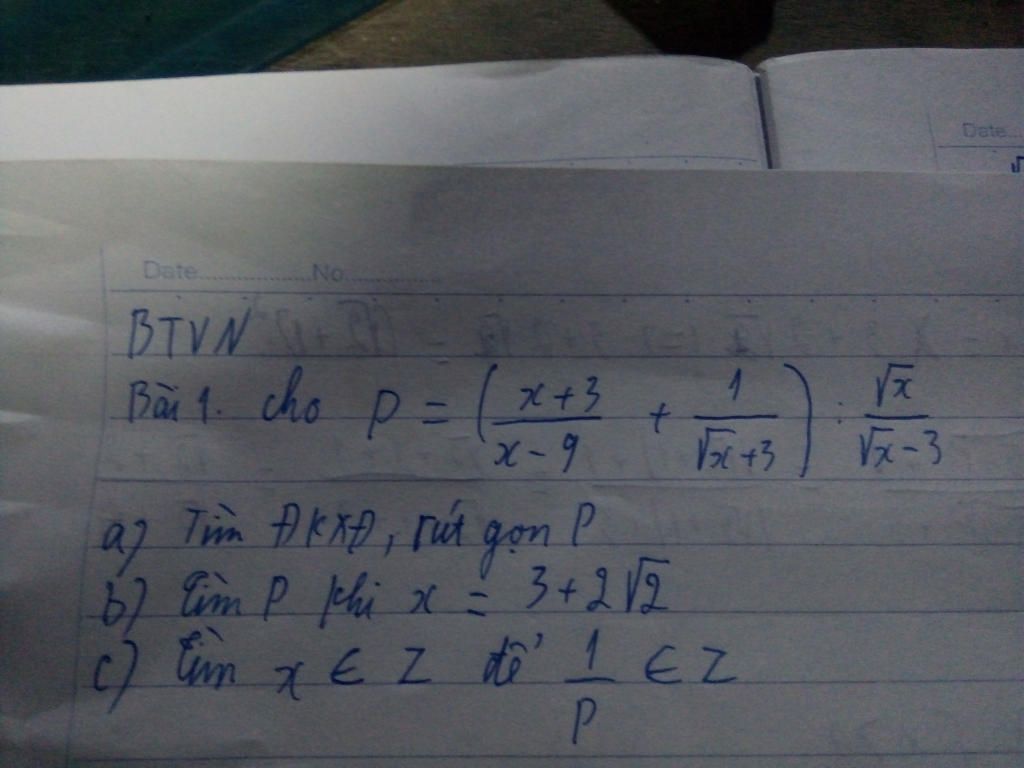 Date...
Date..................No..................
BTVN
Bài 1. cho P = ( \frac{x+3}{x-9} + \frac{1}{\sqrt{x}+3} ) : \frac{\sqrt{x}}{\sqrt{x}-3}
a) Tìm ĐKXĐ, rút gọn P
b) Tìm P khi x = 3+2√2
c) Tìm x ∈ Z để \frac{1}{P} ∈ Z